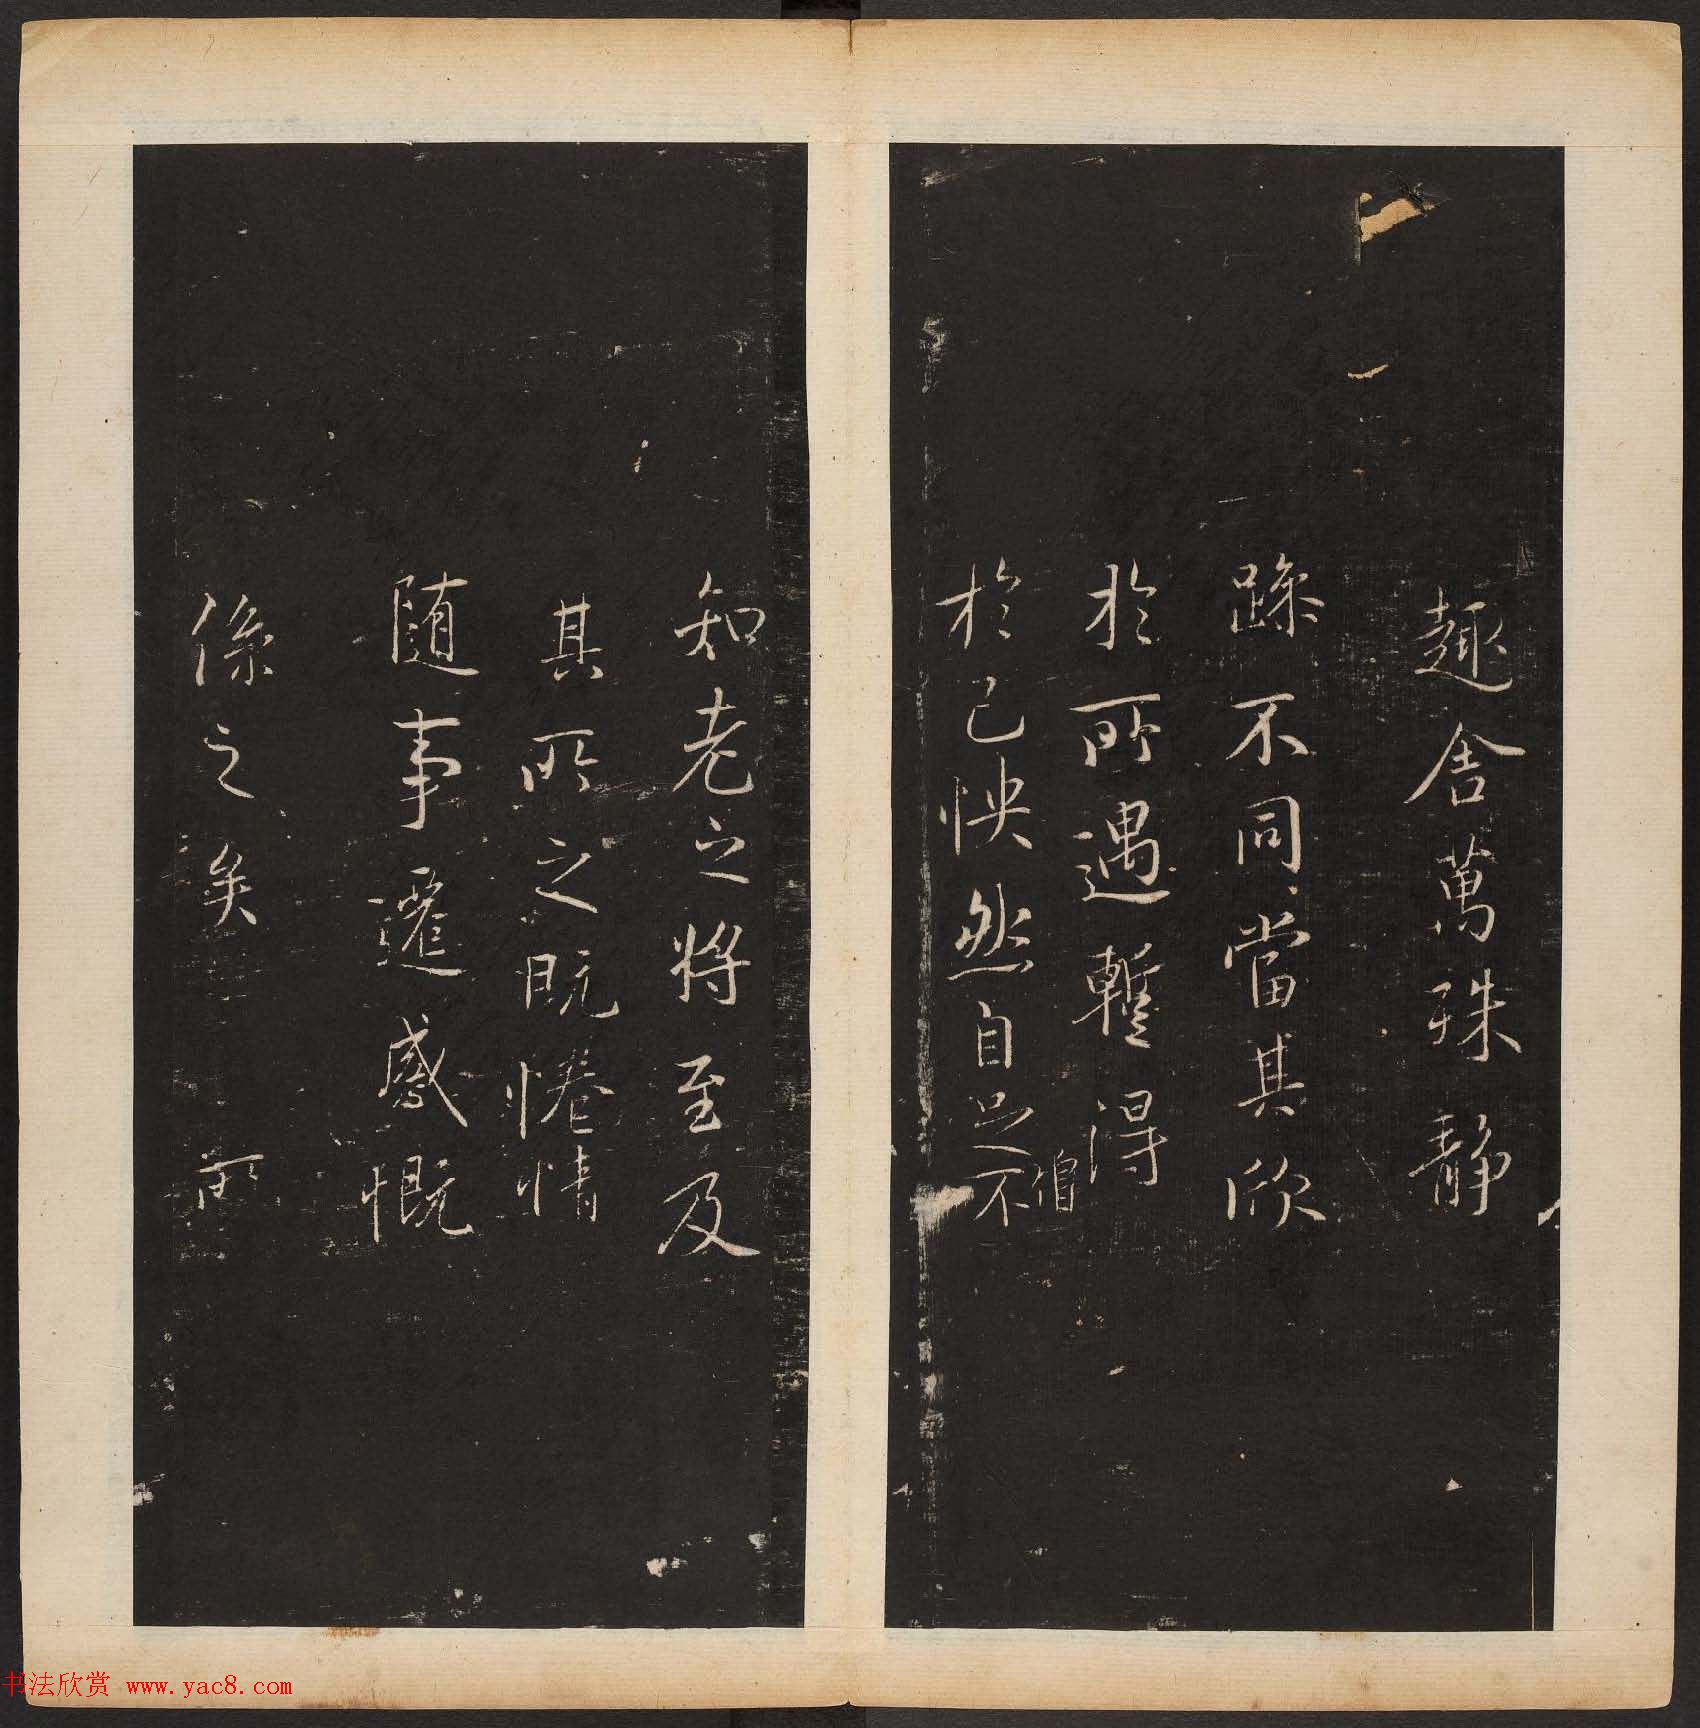 趣舍萬殊靜
躁不同當其欣
於所遇蹔得
於己怏然自足不
僧
知老之將至及
其所之既惓情
随事遷感慨
係之矣向
书法欣赏 www.yac8.com